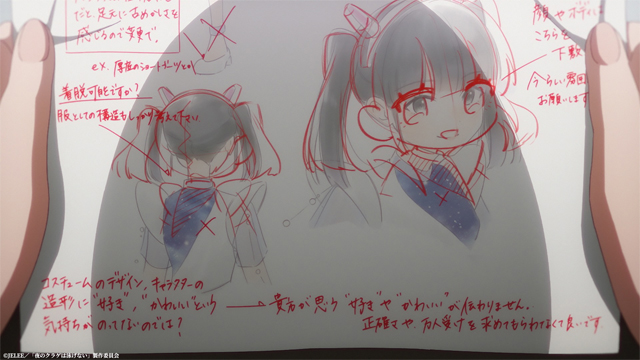 だと、足元に古めかしさを
感じるので美東で、
ex. 厚底のショートブーツとか
着脱可能ですか?
服としての構造もしっかり考えて下さい
顔やボディは
こちらを
下敷
今らしい雰囲
お願いします
コスチュームのデザイン、キャラクターの
造形に"好き"、"かわいい"という
気持ちがのってないのでは?
貴方が思う"好き"や"かわいい"が伝わりません。
正確さや、万人受けを求めてもらわなくて良いです。
©JELEE/「夜のクラゲは泳げない」製作委員会